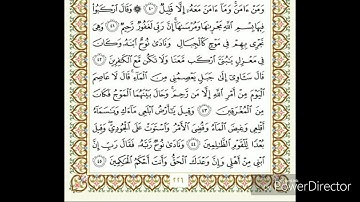 وَمَنْ ءَامَنَ وَمَآ ءَامَنَ مَعَهُۥٓ إِلَّا قَلِيلٌ ٤٠ ۞ وَقَالَ ٱرْكَبُوا۟
فِيهَا بِسْمِ ٱللَّهِ مَجْر۪ىٰهَا وَمُرْسَىٰهَآ إِنَّ رَبِّى لَغَفُورٌ رَّحِيمٌ ٤١ وَهِىَ
تَجْرِى بِهِمْ فِى مَوْجٍ كَٱلْجِبَالِ وَنَادَىٰ نُوحٌ ٱبْنَهُۥ وَكَانَ
فِى مَعْزِلٍ يَـٰبُنَىَّ ٱرْكَب مَّعَنَا وَلَا تَكُن مَّعَ ٱلْكَـٰفِرِينَ ٤٢
قَالَ سَـَٔاوِىٓ إِلَىٰ جَبَلٍ يَعْصِمُنِى مِنَ ٱلْمَآءِ قَالَ لَا عَاصِمَ
ٱلْيَوْمَ مِنْ أَمْرِ ٱللَّهِ إِلَّا مَن رَّحِمَ وَحَالَ بَيْنَهُمَا ٱلْمَوْجُ فَكَانَ
مِنَ ٱلْمُغْرَقِينَ ٤٣ وَقِيلَ يَـٰٓأَرْضُ ٱبْلَعِى مَآءَكِ وَيَـٰسَمَآءُ
أَقْلِعِى وَغِيضَ ٱلْمَآءُ وَقُضِىَ ٱلْأَمْرُ وَٱسْتَوَتْ عَلَى ٱلْجُودِىِّ وَقِيلَ
بُعْدًا لِّلْقَوْمِ ٱلظَّـٰلِمِينَ ٤٤ وَنَادَىٰ نُوحٌ رَّبَّهُۥ فَقَالَ رَبِّ إِنَّ
ٱبْنِى مِنْ أَهْلِى وَإِنَّ وَعْدَكَ ٱلْحَقُّ وَأَنتَ أَحْكَمُ ٱلْحَـٰكِمِينَ ٤٥
٢٢٦
PowerDirector